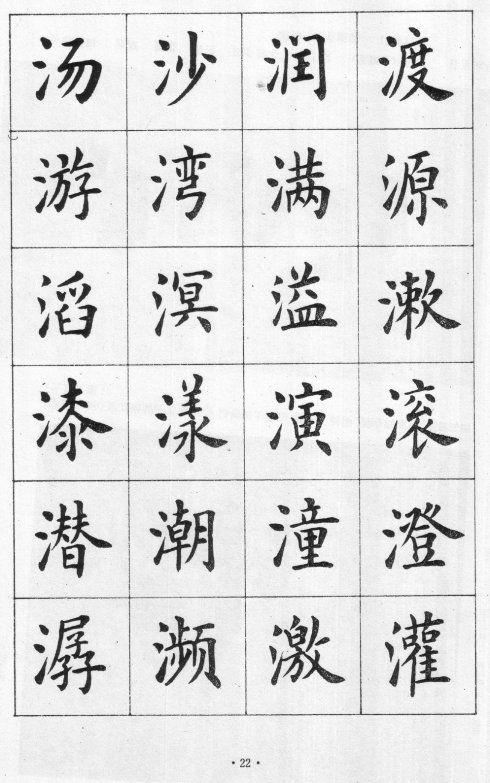 汤沙润渡
游湾满源
滔溟溢漱
漆漾演滚
潜潮潼澄
潺濒激灌
·22·